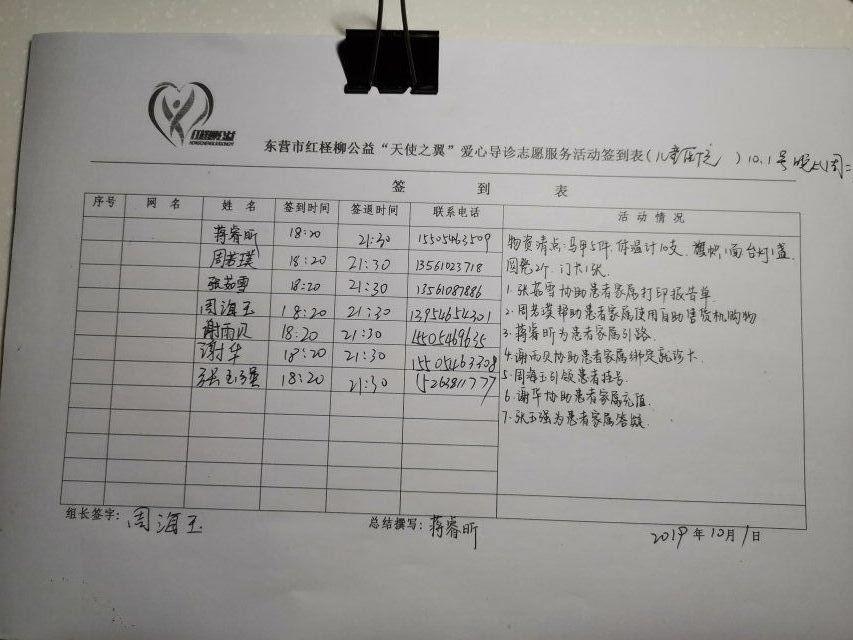 红柽柳公益
HONGCHENGLIUGONGYI
东营市红柽柳公益“天使之翼”爱心导诊志愿服务活动签到表(儿童医院)10.1号晚上周二
签 到 表
序号 网 名 姓 名 签到时间 签退时间 联系电话 活 动 情 况
蒋睿昕 18:20 21:30 15505463509
周若璞 18:20 21:30 13561023718
张茹雪 18:20 21:30 13561087886
周海玉 18:20 21:30 13954654301
谢雨贝 18:20 21:30 15505469635
谢华 18:20 21:30 15505463308
张玉强 18:20 21:30 15263811777
物资清点:马甲5件,体温计10支,旗帜1面台灯1盏
圆凳2个,门卡1张
1.张茹雪协助患者家属打印报告单
2.周若璞帮助患者家属使用自助售货机购物
3.蒋睿昕为患者家属引路
4.谢雨贝协助患者家属绑定就诊卡
5.周海玉引领患者挂号
6.谢华协助患者家属充值
7.张玉强为患者家属答疑
组长签字:周海玉 总结撰写:蒋睿昕 2019年10月1日